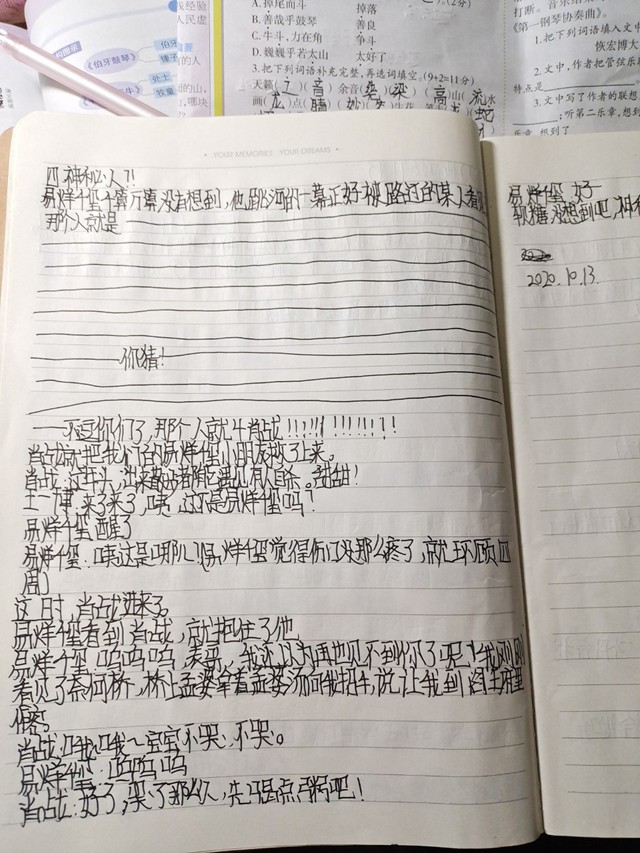 《伯牙鼓琴》
伯牙
锤子
处士
牧童
A.掉尾而斗 掉落
B.善哉乎鼓琴 善良
C.牛斗,力在角 争斗
D.巍巍乎若太山 太好了
3.把下列词语补充完整,再选词填空。(9+2=11分)
天籁之音 余音绕梁 高山流水
画龙点睛
《第一钢琴协奏曲》。
1.把下列词语填入文中
恢宏博大
2.文中,作者把管弦乐
特点是
3.文中写了作者的联想
;听第二乐章,想到
YOUR MEMORIES · YOUR DREAMS
四 神秘人?!
易烊千玺千算万算没有想到,他跳河的一幕正好被路过的某人看见
那个人就是
你猜!
——不逗你们了,那个人就是肖战!!!!!!!!!!!!
肖战就把我们的易烊千玺小朋友救了上来。
肖战:这年头,出来散步都能遇见有人自杀。甜甜!
来了来了,咦,这不是易烊千玺吗?
易烊千玺醒了
易烊千玺:咦这是哪儿?(易烊千玺觉得伤口没那么疼了,就环顾四
周)
这时,肖战进来了。
易烊千玺看到肖战,就抱住了他
易烊千玺:呜呜呜,表哥,我还以为再也见不到你了呢!我刚刚
看见了奈何桥,桥上孟婆拿着孟婆汤向我招手,说让我到阎王府里
做客
肖战:哦,哦~宝宝不哭,不哭。
易烊千玺:呜呜呜
肖战:好了,哭了那么久,先喝点粥吧!
易烊千玺:好
软猬:没想到吧,神秘
2020.10.13.